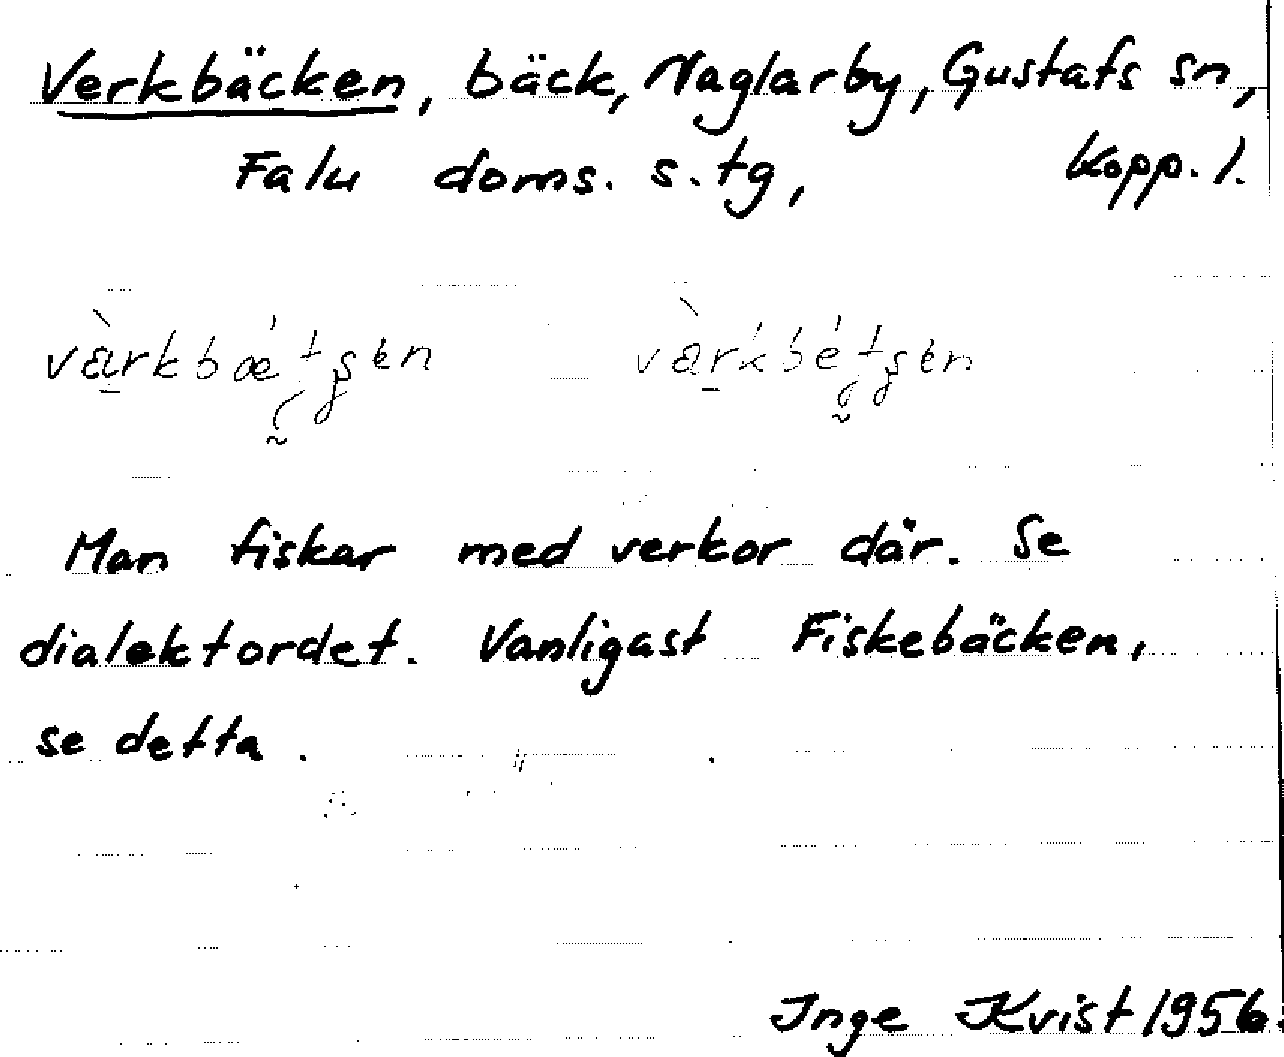 Verkbäcken, bäck, Naglarby, Gustafs sn,
Falu doms. s. tg, Kopp. l.
Man fiskar med verkor där. Se
dialektordet. Vanligast Fiskebäcken,
se detta.
Inge Kvist 1956.